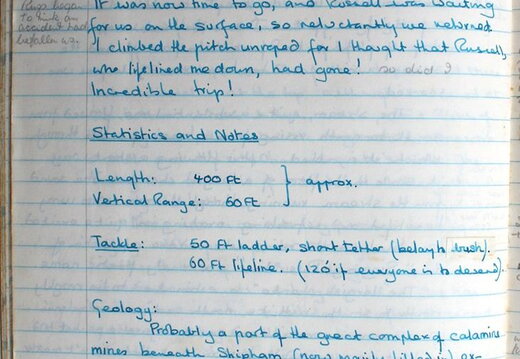 Russ began
to think an
accident had
befallen us.
It was now time to go, and Russell was waiting
for us on the surface, so reluctantly we returned.
I climbed the pitch unroped for I thought that Russell,
who lifelined me down, had gone! so did I
Incredible trip!
Statistics and Notes
Length: 400 Ft } approx.
Vertical Range: 60 Ft
Tackle: 50 Ft ladder, short tether (belay to bush).
60 Ft lifeline. (120' if everyone is to descend).
Geology:
Probably a part of the great complex of calamine
mines beneath Shipham (now mainly filled in)